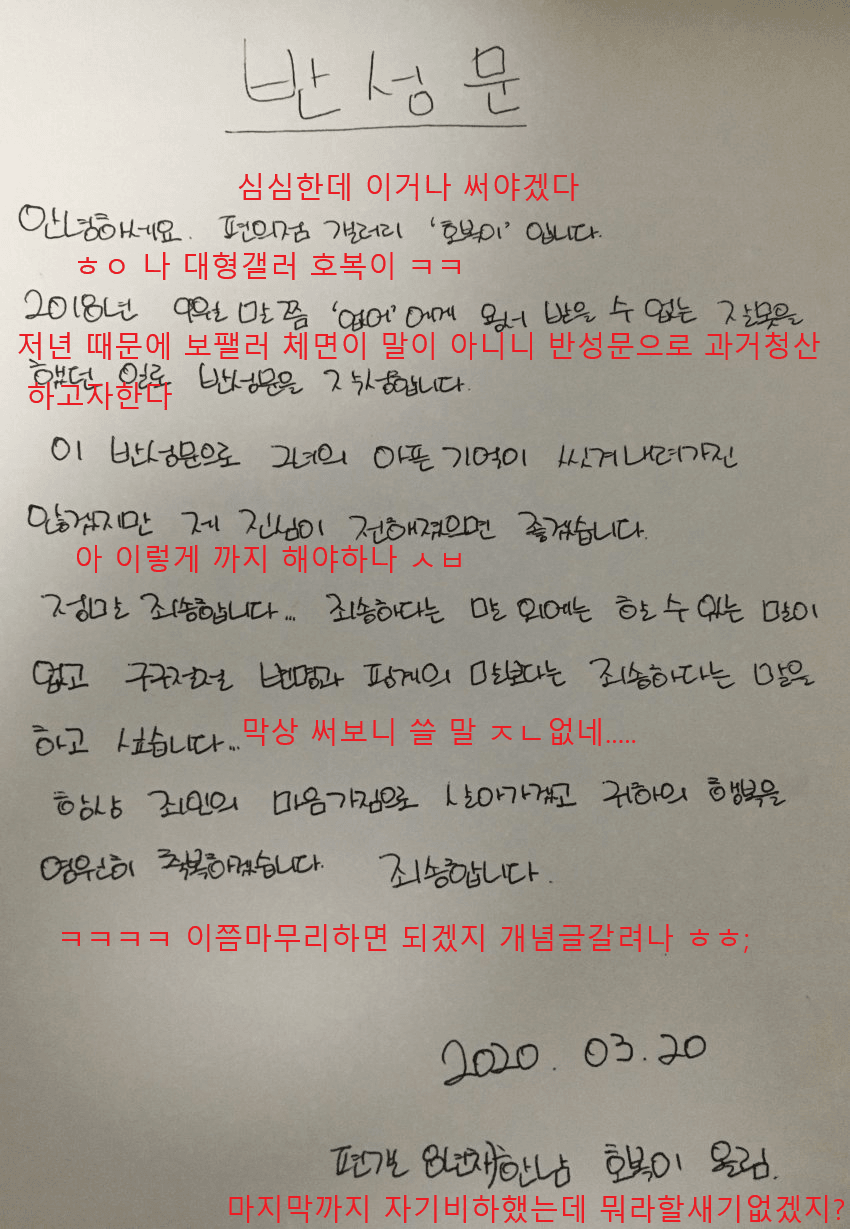 반성문
심심한데 이거나 써야겠다
안녕하세요. 편의점 갤러리 '호복이' 입니다.
ㅎㅇ 나 대형갤러 호복이 ㅋㅋ
2018년 9월 말쯤 '없어'에게 용서 받을 수 없는 잘못을
저년 때문에 보팰러 체면이 말이 아니니 반성문으로 과거청산
했던 일로 반성문을 작성합니다.
하고자한다
이 반성문으로 그녀의 아픈 기억이 씻겨 내려가진
않겠지만 제 진심이 전해졌으면 좋겠습니다.
아 이렇게 까지 해야하나 ㅅㅂ
정말 죄송합니다... 죄송하다는 말 외에는 할 수 있는 말이
없고 구구절절 변명과 핑계의 말보다는 죄송하다는 말을
하고 싶습니다... 막상 써보니 쓸 말 ㅈㄴ없네.....
항상 죄인의 마음가짐으로 살아가겠고 귀하의 행복을
영원히 축복하겠습니다. 죄송합니다.
ㅋㅋㅋㅋ 이쯤마무리하면 되겠지 개념글갈려나 ㅎㅎ;
2020. 03. 20
편갤 8년차 한남 호복이 올림.
마지막까지 자기비하했는데 뭐라할새기없겠지?